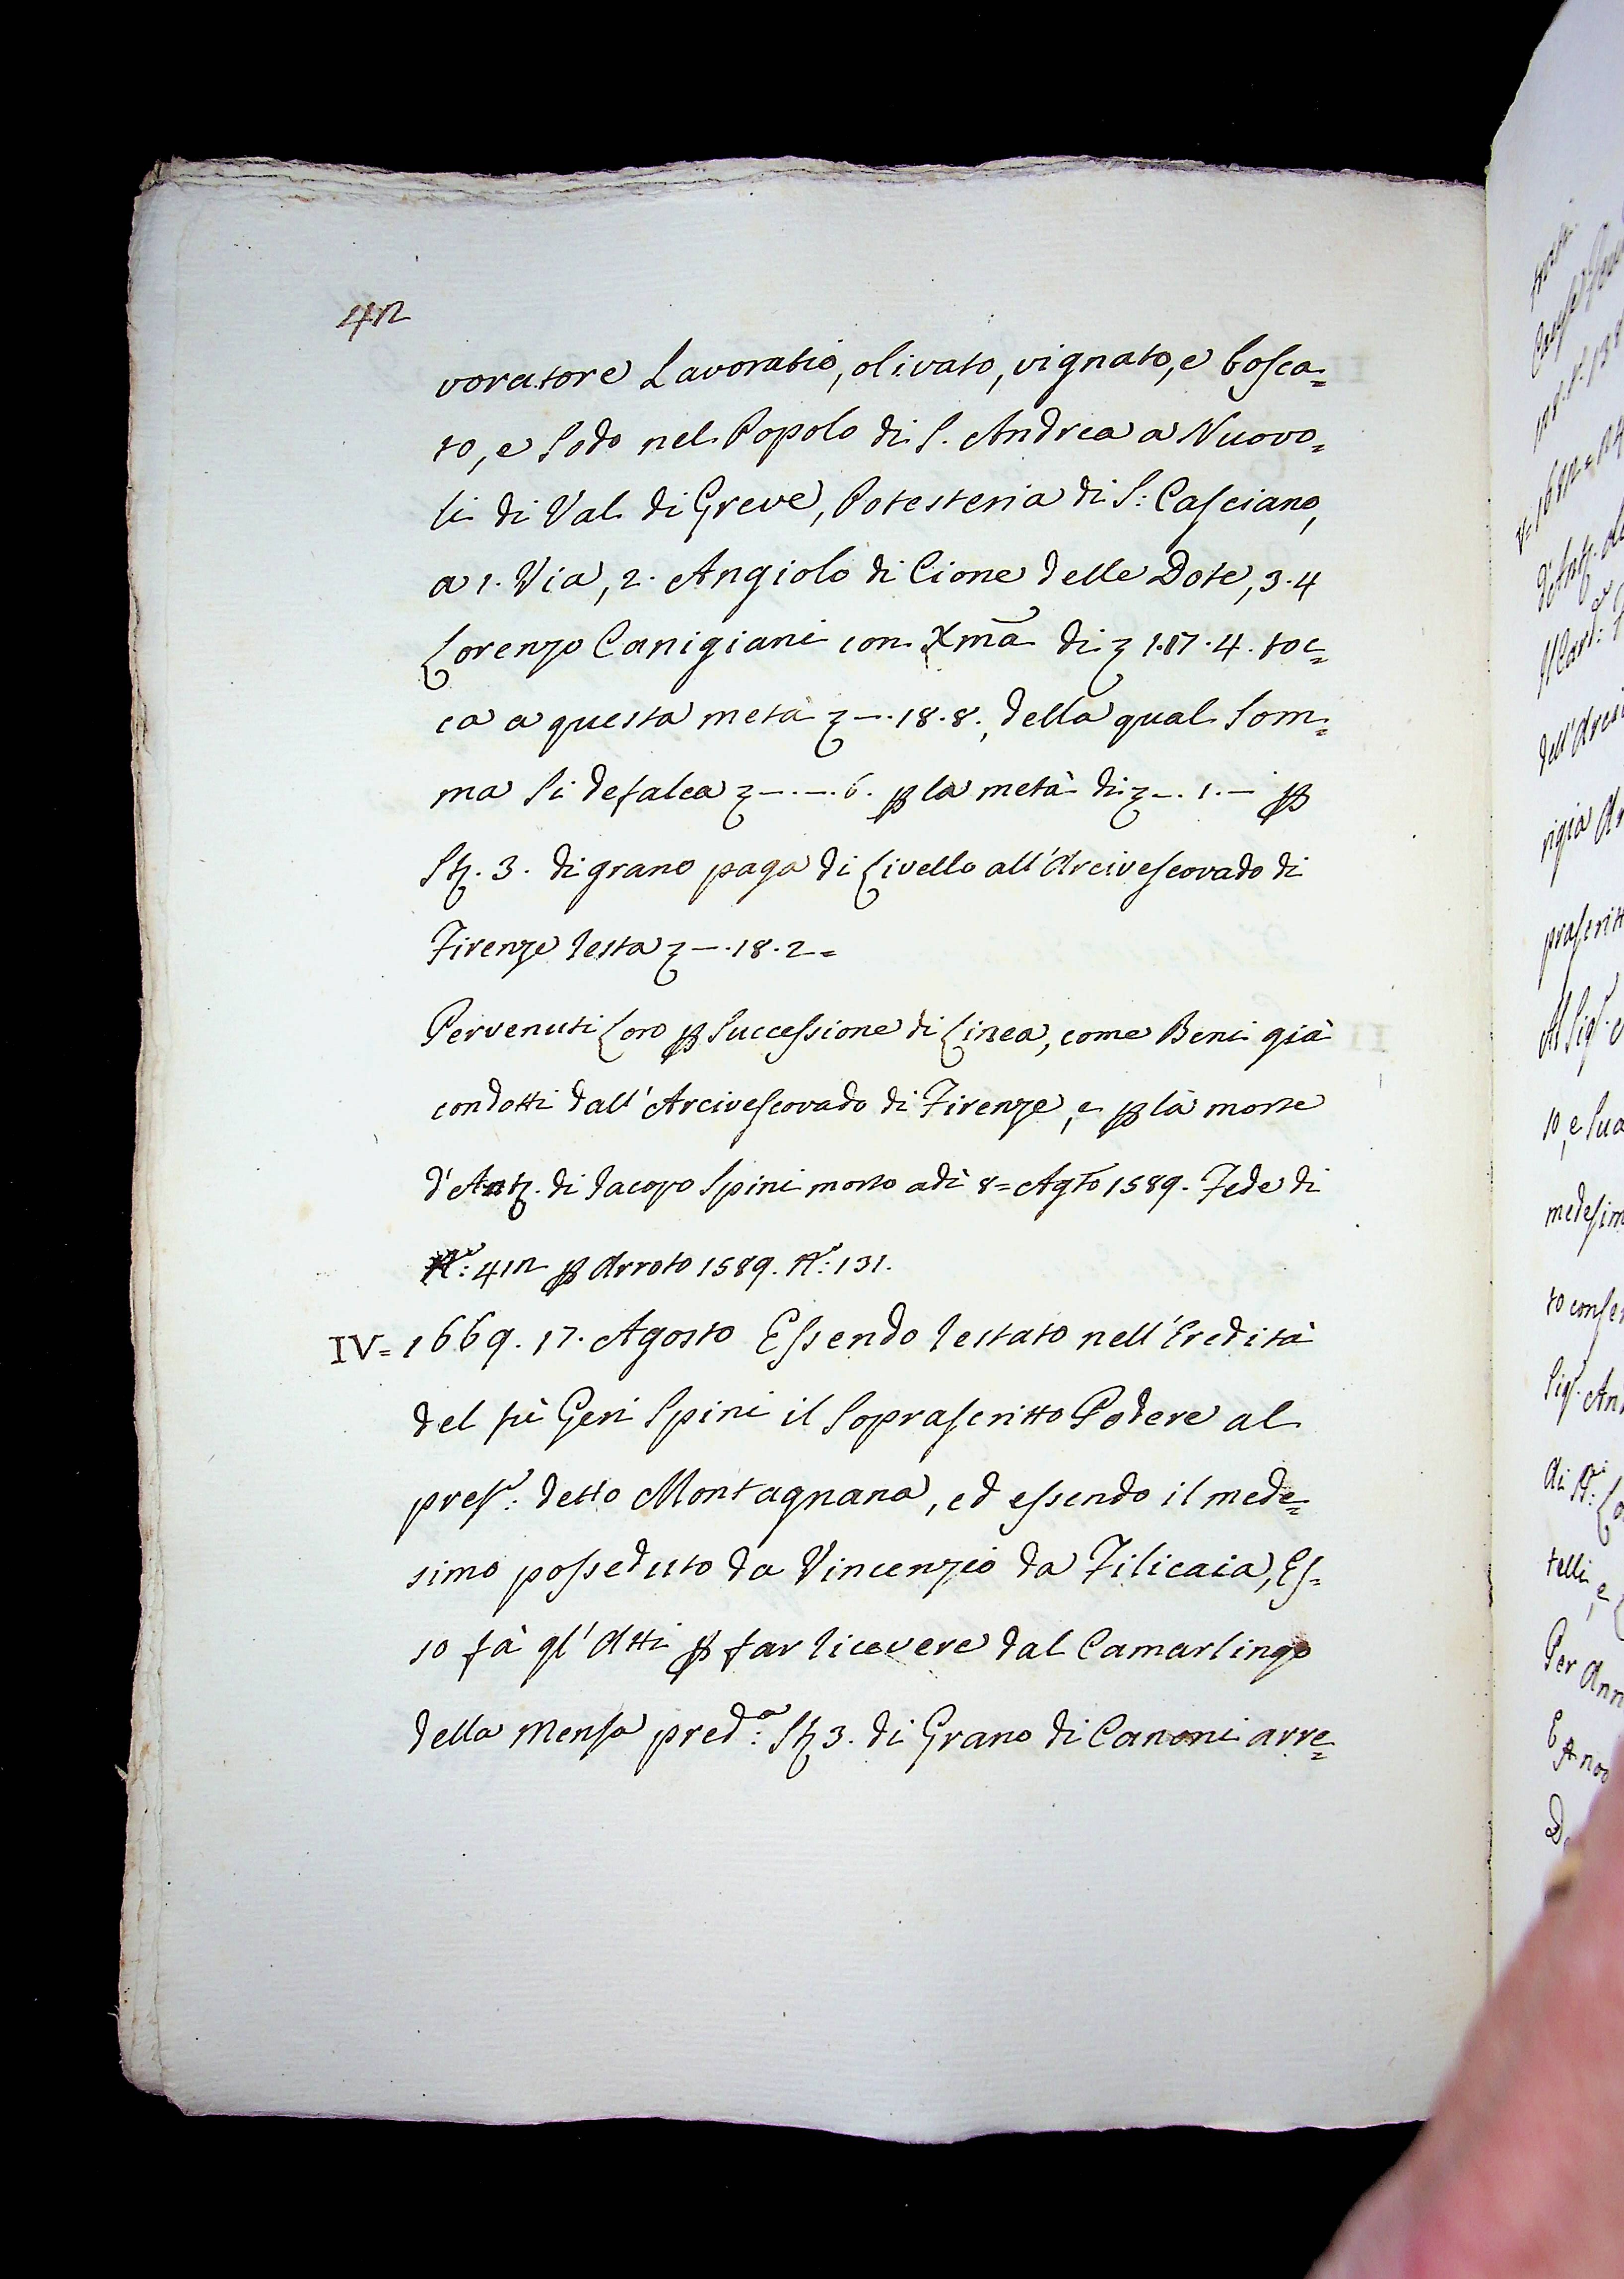 42
voratore Lavoratio, olivato, vignato, e bosca=
to, e sodo nel Popolo di S. Andrea a Nuovo=
li di Val di Greve, Potesteria di S: Casciano,
a 1. Via, 2. Angiolo di Cione delle Dote, 3. 4
Lorenzo Canigiani con Xma di ʒ 1.17.4. toc=
ca a questa metà ʒ —.18.8., della qual som=
ma si defalca ʒ —.—.6. ꝑ la metà di ʒ —.1.— ꝑ
St. 3. di grano paga di Livello all'Arcivescovado di
Firenze resta ʒ —.18.2=
Pervenuti loro ꝑ successione di Linea, come Beni già
condotti dall'Arcivescovado di Firenze, e ꝑ la morte
d'Ant. di Iacopo Spini morto adì 8= Agto 1589. Fede di
N: 412 ꝑ Arroto 1589. N: 131.
IV= 1669. 17. Agosto Essendo restato nell'Eredità
del fù Geri Spini il soprascritto Podere al
pres: detto Montagnana, ed essendo il mede=
simo posseduto da Vincenzio da Filicaia, Es=
so fà gl'Atti ꝑ far ricevere dal Camarlingo
della Mensa predª: St 3. di Grano di Canoni arre=